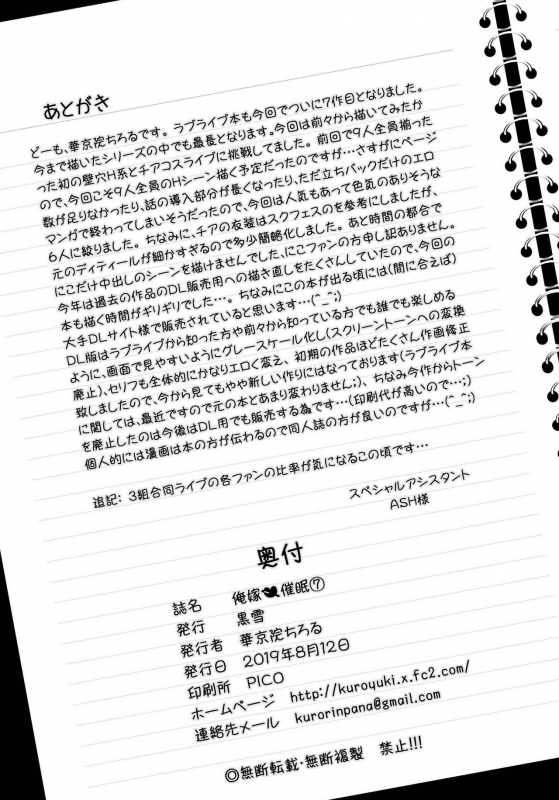 あとがき
どーも、華京院ちろるです。 ラブライブ本も今回でついに7作目となりました。
今まで描いたシリーズの中でも最長となります。今回は前々から描いてみたか
った初の壁穴H系とチアコスライブに挑戦してました。 前回で9人全員揃った
ので、今回こそ9人全員のHシーン描く予定だったのですが…さすがにページ
数が足りなかったり、話の導入部分が長くなったり、ただ立ちバックだけのエロ
マンガで終わってしまいそうだったので、今回は人気もあって色気のありそうな
6人に絞りました。 ちなみに、チアの衣装はスクフェスのを参考にしましたが、
元のディティールが細かすぎるので多少簡略化しました。 あと時間の都合で
にこだけ中出しのシーンを描けませんでした、にこファンの方申し訳ありません。
今年は過去の作品のDL販売用への描き直しをたくさんしていたので、今回の
本も描く時間がギリギリでした…。 ちなみにこの本が出る頃には(間に合えば)
大手DLサイト様で販売されていると思います…(^_^;)
DL版はラブライブから知った方や前々から知っている方でも誰でも楽しめる
ように、画面で見やすいようにグレースケール化し(スクリーントーンへの変換
廃止)、セリフも全体的にかなりエロく変え、 初期の作品ほどたくさん作画修正
致しましたので、今から見てもやや新しい作りにはなっております(ラブライブ本
に関しては、最近ですので元の本とあまり変わりません;)、 ちなみ今作からトーン
を廃止したのは今後はDL用でも販売する為です…(印刷代が高いので…;)
個人的には漫画は本の方が伝わるので同人誌の方が良いのですが…(^_^;)
追記: 3組合同ライブの各ファンの比率が気になるこの頃です…
スペシャルアシスタント
ASH様
奥付
誌名 俺嫁催眠⑦
発行 黒雪
発行者 華京院ちろる
発行日 2019年8月12日
印刷所 PICO
ホームページ http://kuroyuki.x.fc2.com/
連絡先メール kurorinpana@gmail.com
◎無断転載・無断複製 禁止!!!